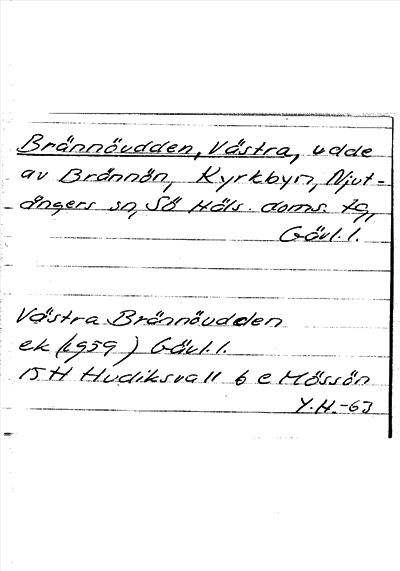 Brännöudden, Västra, udde
av Brännön, Kyrkbyn, Njut-
ångers sn, Sö Häls. doms. tg,
Gävl. l.
Västra Brännöudden
ek (1959) Gävl. l.
15 H Hudiksvall 6 e Mössön
Y.H.-63